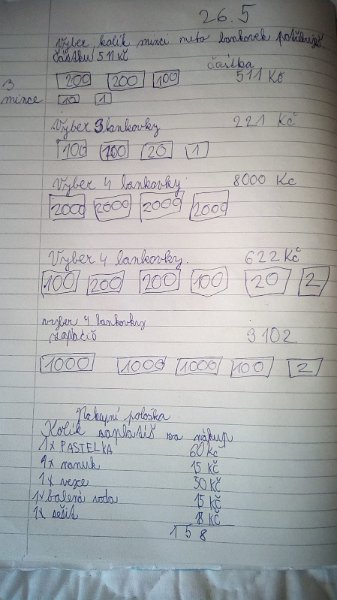 26.5
Vyber, kolik mincí nebo bankovek potřebuješ
částku 511 Kč
částka
200 200 100 511 Kč
3 mince
10 1
Vyber 3 bankovky 221 Kč
100 100 20 1
Vyber 4 bankovky. 8000 Kc
2000 2000 2000 2000
Vyber 4 bankovky. 622 Kč
100 200 200 100 20 2
vyber 4 bankovky
zaplatíš 3102
1000 1000 1000 100 2
Nákupní položka
Kolik zaplatíš za nákup
1x PASTELKA 60 Kč
1x nanuk 15 Kč
1x vejce 50 Kč
1x balená voda 15 Kč
1x sešit 18 Kč
158